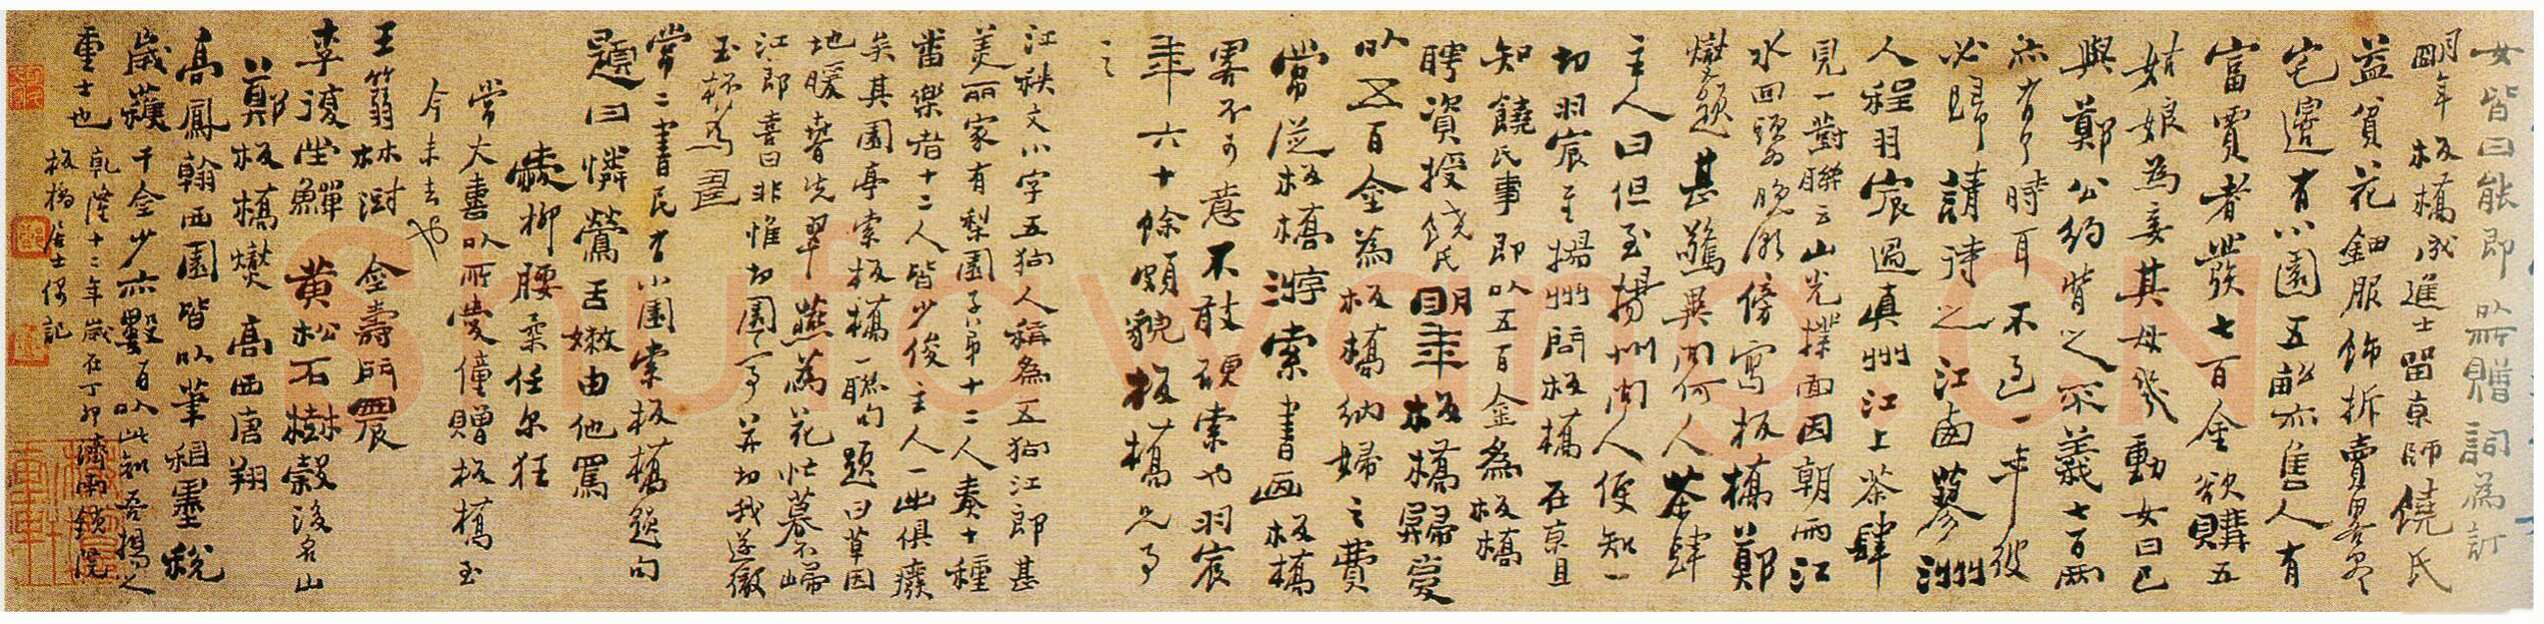 女皆曰能即以所贈詞為訂
明年板橋成進士留京師饒氏
益貧花鈿服飾拆賣略盡
宅邊有小園五畝亦售人有
富賈者發七百金欲購五
姑娘為妾其母幾動女曰已
與鄭公約背之不義七百兩
亦有了時耳不過一年彼
必歸請待之江西蓼洲
人程羽宸過真州江上茶肆
見一對聯云山光撲面因朝雨江
水回頭為晚潮傍寫板橋鄭
燮題甚驚異問何人茶肆
主人曰但至揚州問人便知一
切羽宸至揚州問板橋在京且
知饒氏事即以五百金為板橋
聘資授饒氏明年板橋歸復
以五百金為板橋納婦之費
常從板橋游索書画板橋
略不可意不敢硬索也羽宸
年六十餘頗貌板橋兄事
之
江秩文小字五狗人稱為五狗江郎甚
美麗家有梨園子弟十二人奏十種
番樂者十二人皆少俊主人一出俱廢
矣其園亭索板橋一聯句題曰草因
地暖春先翠燕為花忙暮不歸
江郎喜曰非惟切園亭并切我遂徹
玉杯為壽
常二書民有小園索板橋題句
題曰憐鶯舌嫩由他罵
愛柳腰柔任爾狂
常大喜以所愛僮贈板橋至
今未去也
王箬林澍 金壽門農
李復堂鱓 黃松石樹穀後名山
鄭板橋燮 高西唐翔
高鳳翰西園皆以筆租墨稅
歲獲千金少亦數百以此知吾揚之
重士也 乾隆十二年歲在丁卯濟南鎖院
板橋居士偶記
shufawang.CN